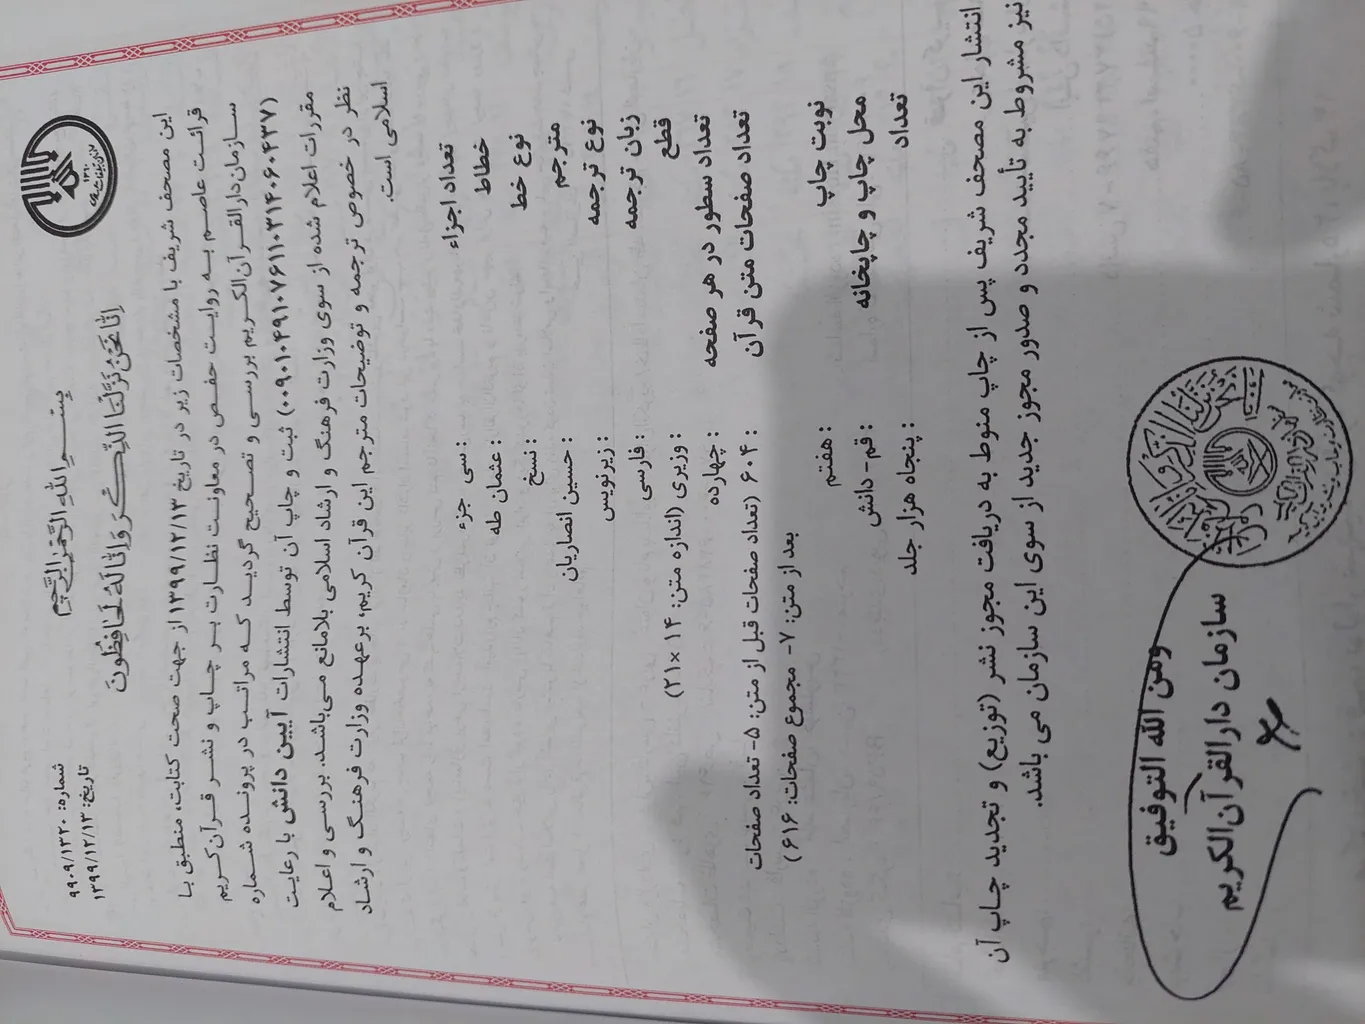 بِسْمِ اللهِ الرَّحْمٰنِ الرَّحِيمِ
إِنَّا نَحْنُ نَزَّلْنَا الذِّكْرَ وَإِنَّا لَهُ لَحَافِظُونَ
شماره: ۹۹۰۹/۱۳۲۰
تاریخ: ۱۳۹۹/۱۲/۱۳
این مصحف شریف با مشخصات زیر در تاریخ ۱۳۹۹/۱۲/۱۳ از جهت صحت کتابت، منطبق با
قرائت عاصم به روایت حفص در معاونت نظارت بر چاپ و نشر قرآن کریم
سازمان دارالقرآن الکریم بررسی و تصحیح گردید که مراتب در پرونده شماره
(۰۰۹۰۱۰۴۹۱۰۷۶۱۱۰۳۱۴۰۶۰۴۳۷) ثبت و چاپ آن توسط انتشارات آیین دانش با رعایت
مقررات اعلام شده از سوی وزارت فرهنگ و ارشاد اسلامی بلامانع می‌باشد. بررسی و اعلام
نظر در خصوص ترجمه و توضیحات مترجم این قرآن کریم، برعهده وزارت فرهنگ و ارشاد
اسلامی است.
تعداد اجزاء : سی جزء
خطاط : عثمان طه
نوع خط : نسخ
مترجم : حسین انصاریان
نوع ترجمه : زیرنویس
زبان ترجمه : فارسی
قطع : وزیری (اندازه متن: ۱۴ × ۲۱)
تعداد سطور در هر صفحه : چهارده
تعداد صفحات متن قرآن : ۶۰۴ (تعداد صفحات قبل از متن: ۵- تعداد صفحات
بعد از متن: ۷- مجموع صفحات: ۶۱۶)
نوبت چاپ : هفتم
محل چاپ و چاپخانه : قم- دانش
تعداد : پنجاه هزار جلد
انتشار این مصحف شریف پس از چاپ منوط به دریافت مجوز نشر (توزیع) و تجدید چاپ آن
نیز مشروط به تأیید مجدد و صدور مجوز جدید از سوی این سازمان می باشد.
ومن الله التوفیق
سازمان دارالقرآن الکریم